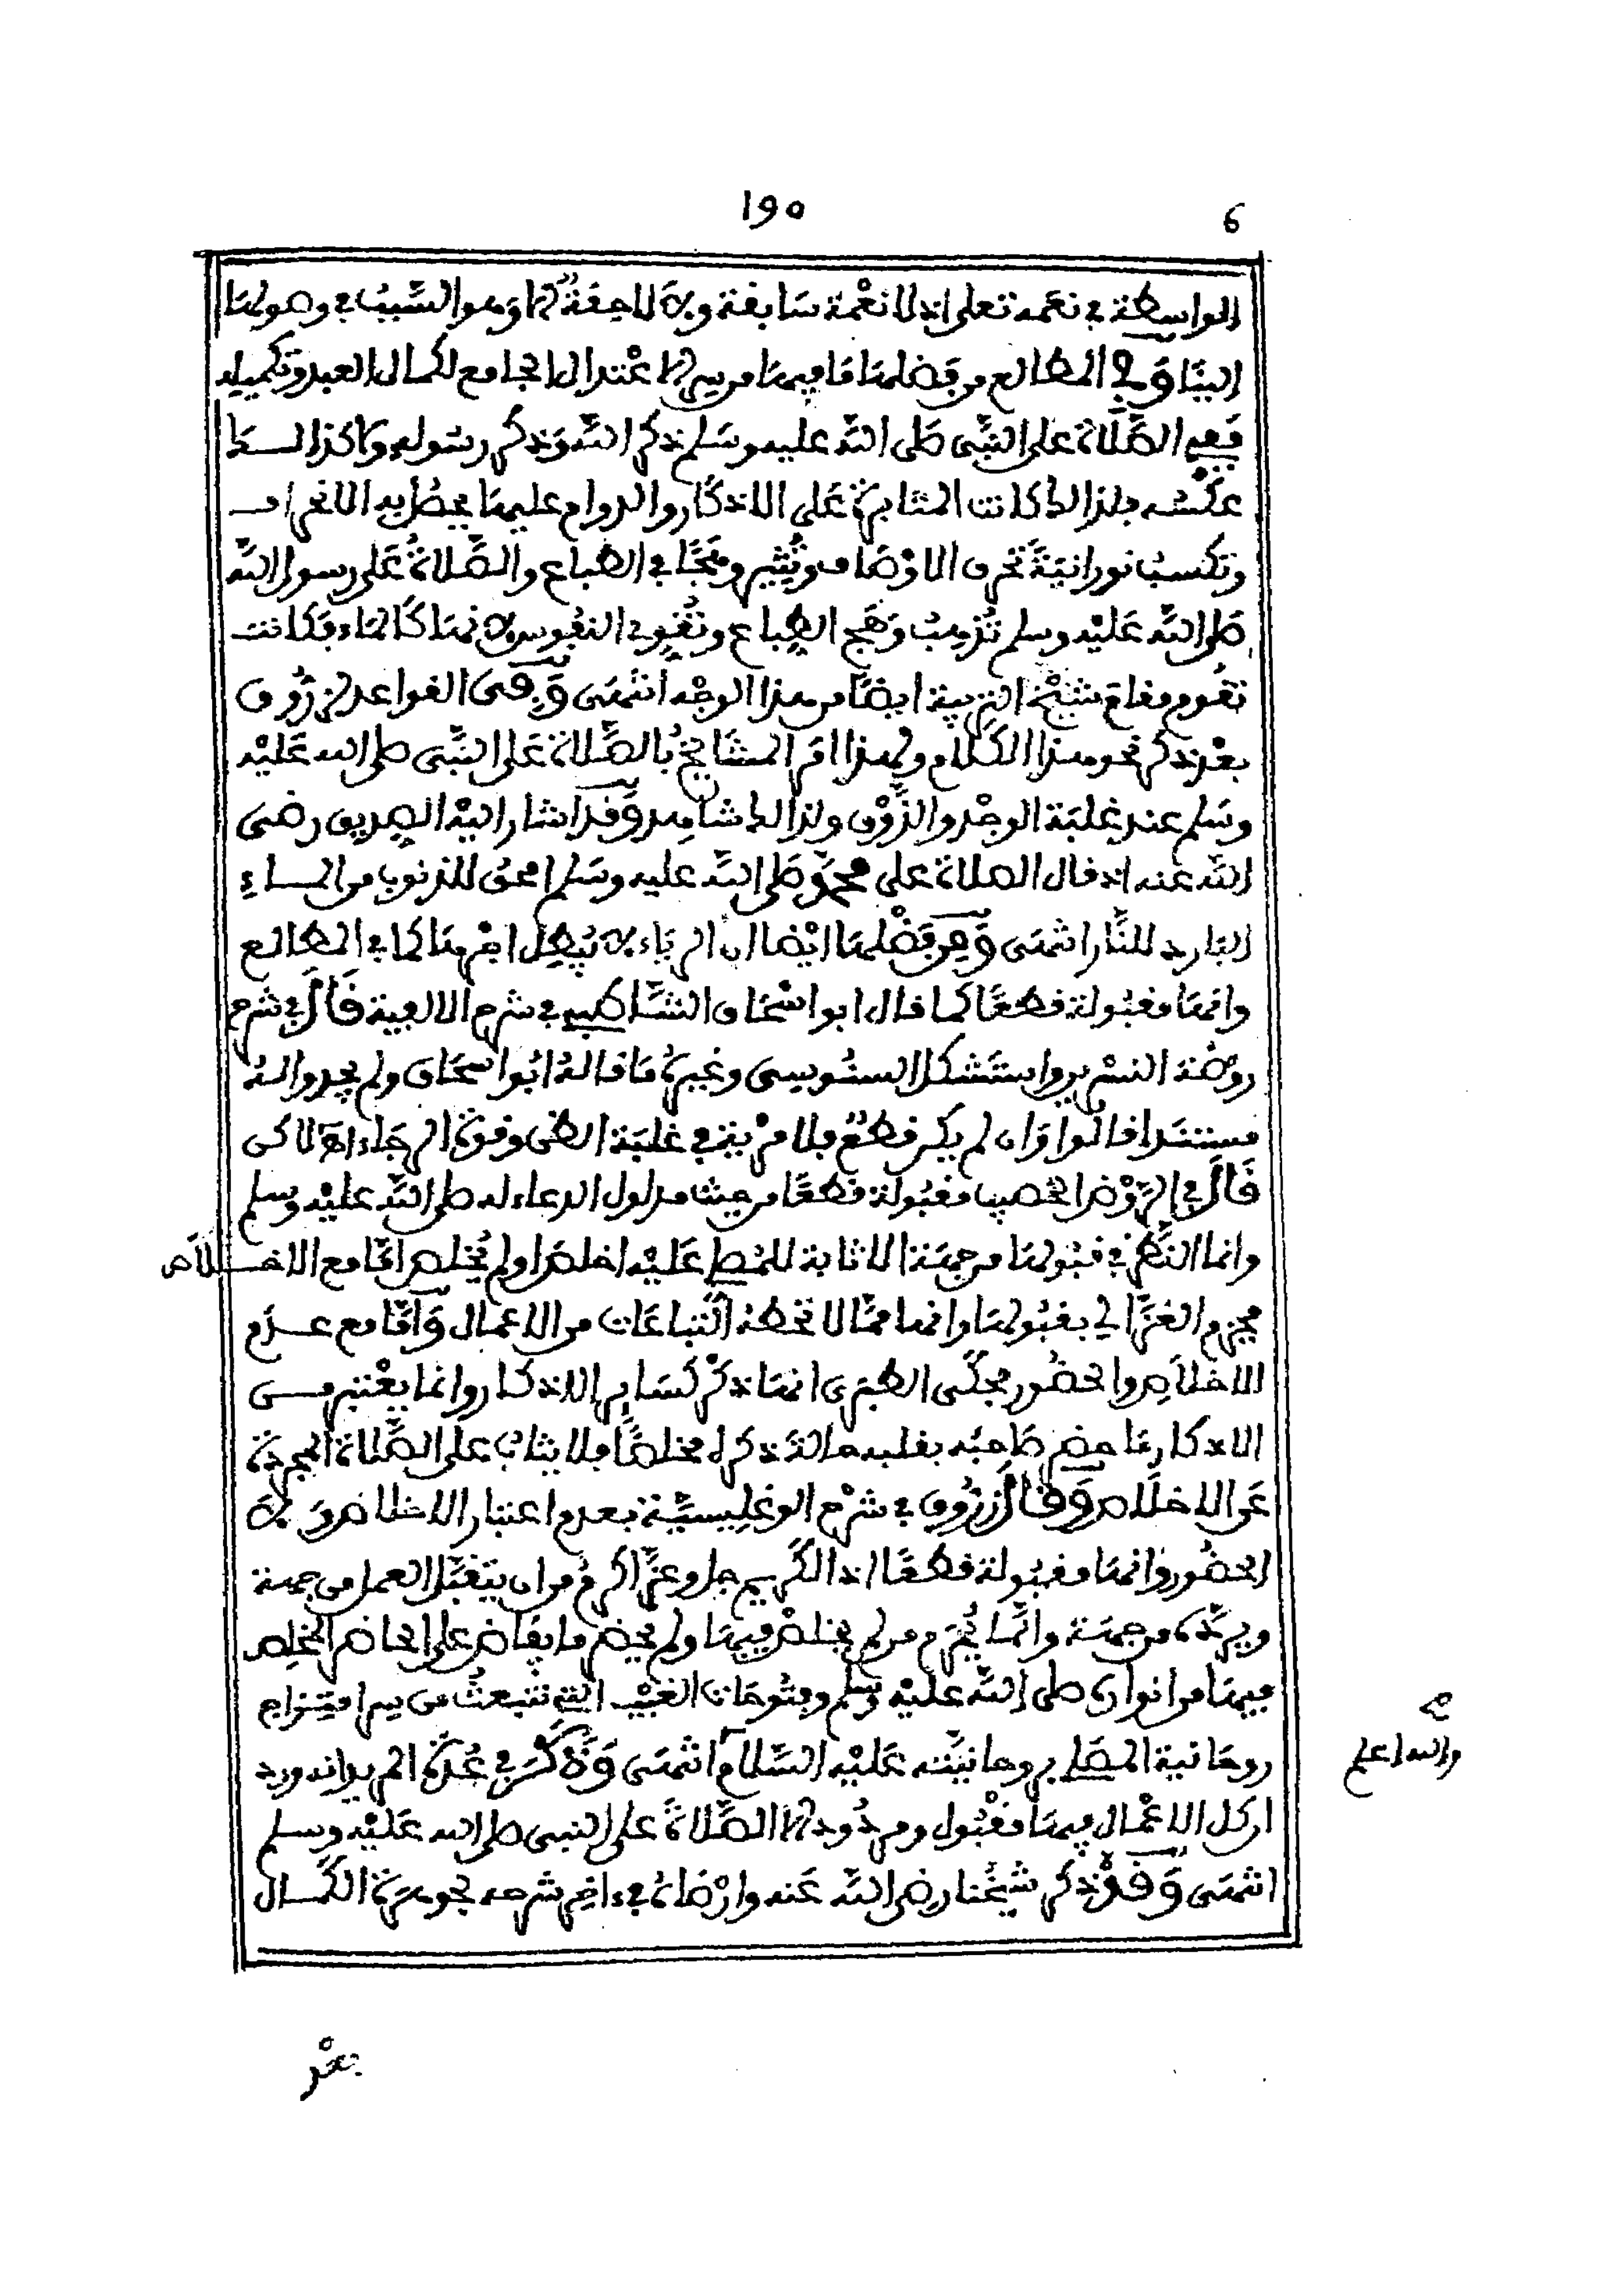 190
6
الواسطة في نعمه تعلى اذ لا نعمة سابقة ولا لاحقة الا وهو السبب في وصولها
الينا وفي المطالع من فضلها ما فيها من سر الاعتدال الجامع لكمال العبد وتكميله
ففي الصلاة على النبي صلى الله عليه وسلم ذكر الله وذكر رسوله ولا كذالك
عكسه فلذالك كانت المثابرة على الاذكار والدوام عليها يحصل به الانحراف
وتكسب نورانية تحرق الاوصاف وتثير وهجا في الطباع والصلاة على رسول الله
صلى الله عليه وسلم تذهب وهج الطباع وتقوي النفوس لانها كالماء فكانت
تقوم مقام شيخ التربية ايضا من هذا الوجه انتهى وفي القواعد لزروق
بعد ذكر نحو هذا الكلام ولهذا امر المشايخ بالصلاة على النبي صلى الله عليه
وسلم عند غلبة الوجد والذوق ولذالك شاهد وقد اشار اليه الصديق رضي
الله عنه اذ قال الصلاة على محمد صلى الله عليه وسلم امحق للذنوب من الماء
البارد للنار انتهى ومن فضلها ايضا ان الرياء لا يبطل اجرها كما في المطالع
وانها مقبولة قطعا كما قال ابو اسحاق الشاطبي في شرح الالفية قال في شرح
روضة النسرين واستشكل السنوسي وغيره ما قاله ابو اسحاق ولم يجدوا له
مستندا قالوا وان لم يكن قطع فلا مرية في غلبة الظن وقوة الرجاء اه لاكن
قال في الروض الخصيب مقبولة قطعا من حيث مدلول الدعاء له صلى الله عليه وسلم
وانما النظر في قبولها من جهة الاثابة للمصلي عليه اخلص او لم يخلص اما مع الاخلاص
فجزم الغزالي بقبولها وانها مما لا تحطه التباعات من الاعمال واما مع عدم
الاخلاص والحضور فحكى الطبري انها ذكر كسائر الاذكار وانما يعتبر من
الاذكار ما حضر صاحبه بقلبه حالة ذكره مخلصا فلا يثاب على الصلاة المجردة
عن الاخلاص وقال زروق في شرح الوغليسية بعدم اعتبار الاخلاص ولا
الحضور وانها مقبولة قطعا اذ الكريم جل وعز اكرم من ان يتقبل العمل من جهة
ويرده من جهة وانما يحرم من لم يخلص فيها ولم يحضر ما يفاض على الحاضر المخلص
فيها من انواره صلى الله عليه وسلم وفتوحات الغيب التي تنبعث من سر امتزاج
روحانية المصلي بروحانيته عليه السلام انتهى وذكر في عدة المريد انه ورد
ان كل الاعمال فيها مقبول ومردود الا الصلاة على النبي صلى الله عليه وسلم
انتهى وقد ذكر شيخنا رضي الله عنه وارضاه في ءاخر شرحه لجوهرة الكمال
والله اعلم